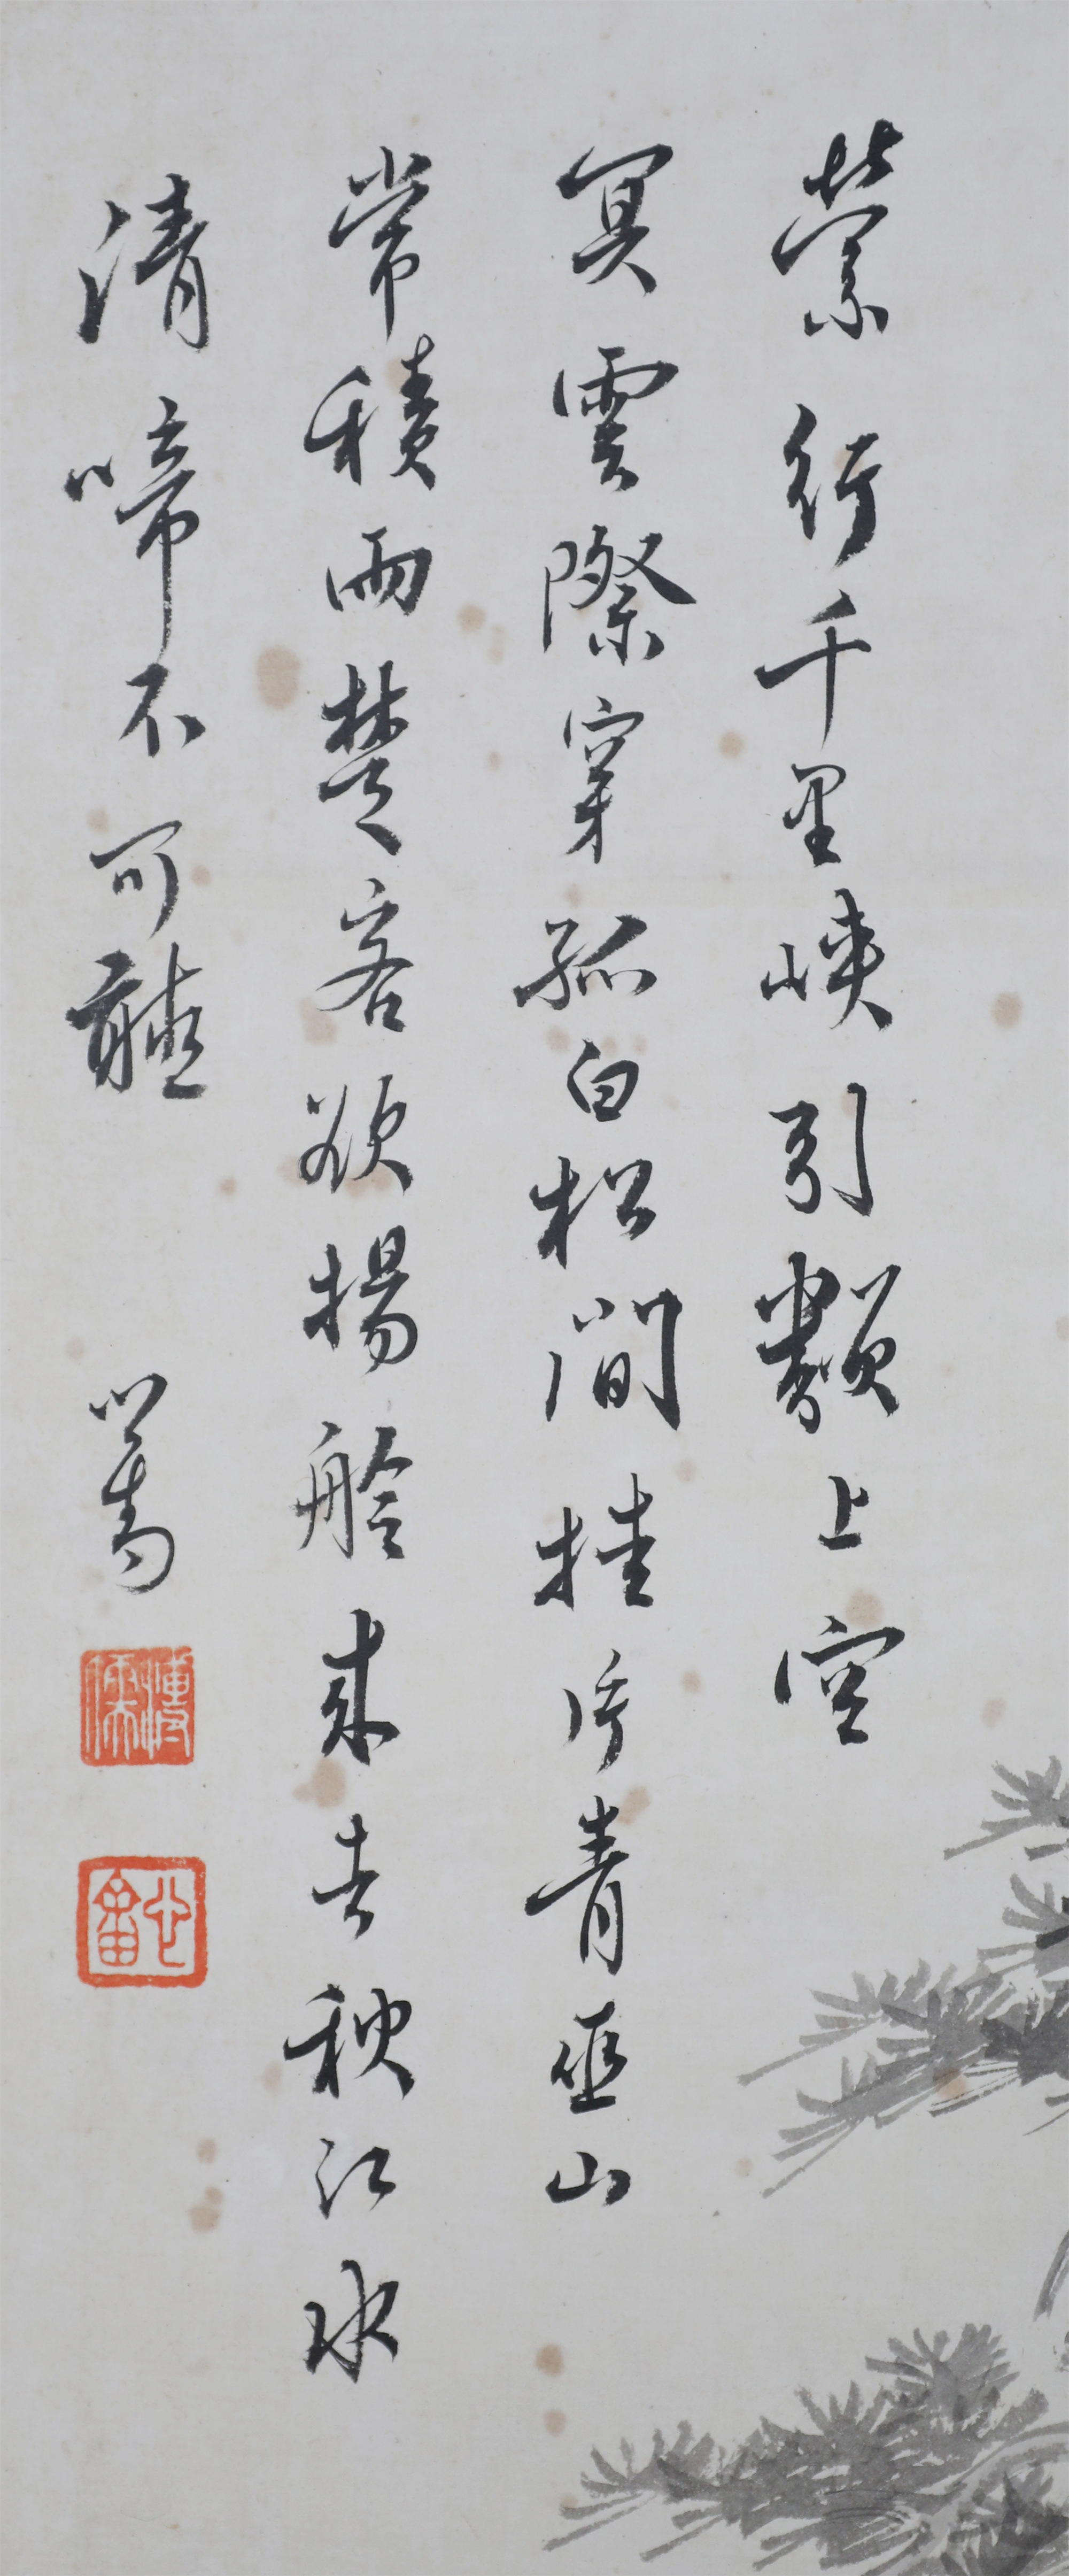 縈行千里峽引類上空
冥雲際穿孤白松間挂片青巫山
常積雨楚客欲揚舲來去秋江水
清啼不可聽
心畬
溥儒
心畬